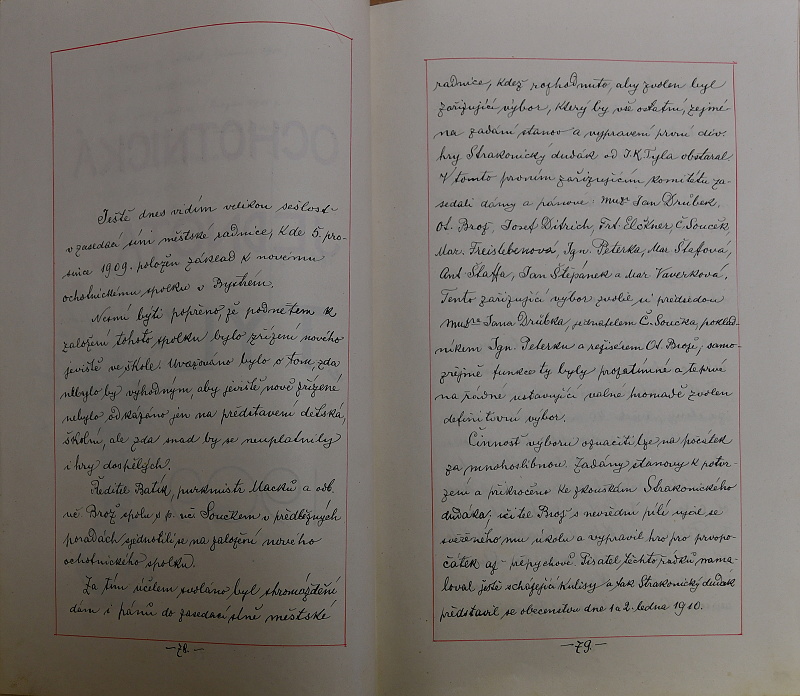 Ještě dnes vidím velikou sešlost
v zasedací síni městské radnice, kde 5. pro-
since 1909. položen základ k novému
ochotnickému spolku v Bystrém.
Nesmí býti popřeno, že podnětem k
založení tohoto spolku bylo zřízení nového
jeviště ve škole. Uvažováno bylo o tom, zda
nebylo by výhodným, aby jeviště nově zřízené
nebylo odkázáno jen na představení dětská,
školní, ale zda snad by se neuplatnily
i hry dospělých.
Ředitel Batík, purkmistr Macků a odb.
uč. Brož spolu s p. uč. Součkem v předběžných
poradách sjednotili se na založení nového
ochotnického spolku.
Za tím účelem svoláno byl shromáždění
dám i pánů do zasedací síně městské
—78.—
radnice, kdež rozhodnuto, aby zvolen byl
zařizující výbor, který by vše ostatní, zejmé-
na zadání stanov a vypravení první div.
hry Strakonický dudák od J. K. Tyla obstaral.
V tomto prvním zařizujícím komitétu za-
sedali dámy a pánové: Mudr. Jan Drůbek,
Ot. Brož, Josef Ditrich, Frt. Elčkner, Č. Souček,
Mar. Freislebenová, Ign. Peterka, Mar Štaffová,
Ant. Štaffa, Jan Štěpánek a Mar Vaverková.
Tento zařizující výbor zvolil si předsedou
Mudra Jana Drůbka, jednatelem Č. Součka, poklad-
níkem Ign. Peterku a režisérem Ot. Brože; samo-
zřejmě funkce ty byly prozatímné a teprve
na řádné ustavující valné hromadě zvolen
definitivní výbor.
Činnost výboru označiti lze na počátek
za mnohoslibnou. Zadány stanovy k potvr-
zení a překročeno ke zkouškám Strakonického
dudáka; učitel Brož s nevšední pílí ujal se
svěřeného mu úkolu a vypravil hro pro prvopo-
čátek až přepychově. Pisatel těchto řádků nama-
loval ještě scházející kulisy a tak Strakonický dudák
představil se obecenstvu dne 1 a 2. ledna 1910.
—79.—